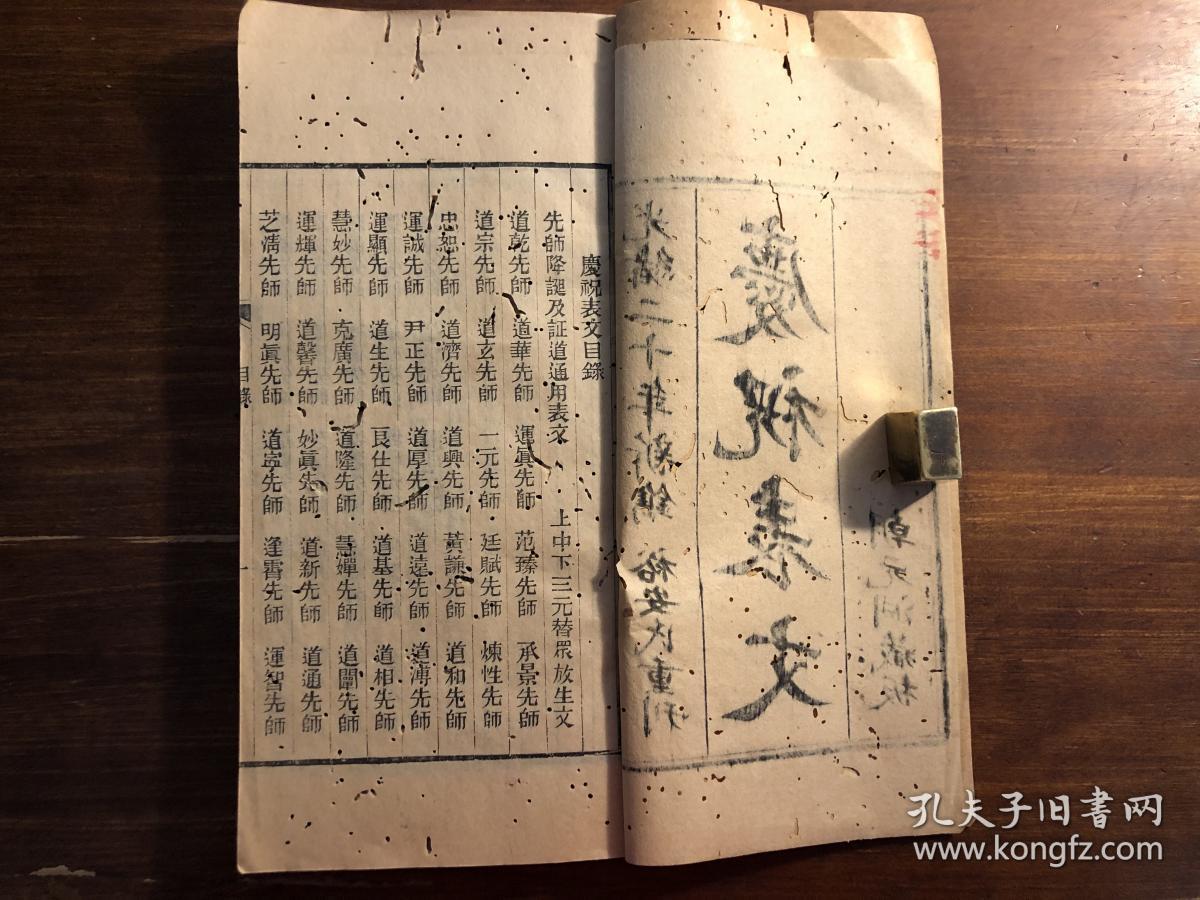 朝元洞藏板
慶祝表文
光緒二十年新鐫 裕安氏重刊
慶祝表文目錄
先師降誕及証道通用表文 上中下三元替眾放生文
道乾先師 道華先師 運眞先師 范臻先師 承景先師
道宗先師 道玄先師 一元先師 廷賦先師 煉性先師
忠恕先師 道濟先師 道興先師 黃謙先師 道和先師
運誠先師 尹正先師 道厚先師 道遠先師 道溥先師
運顯先師 道生先師 良仕先師 道基先師 道相先師
慧妙先師 克廣先師 道隆先師 慧嬋先師 道闡先師
運輝先師 道馨先師 妙眞先師 道新先師 道通先師
芝清先師 明眞先師 道寧先師 逢春先師 運智先師
目錄
孔夫子旧書网
www.kongfz.com